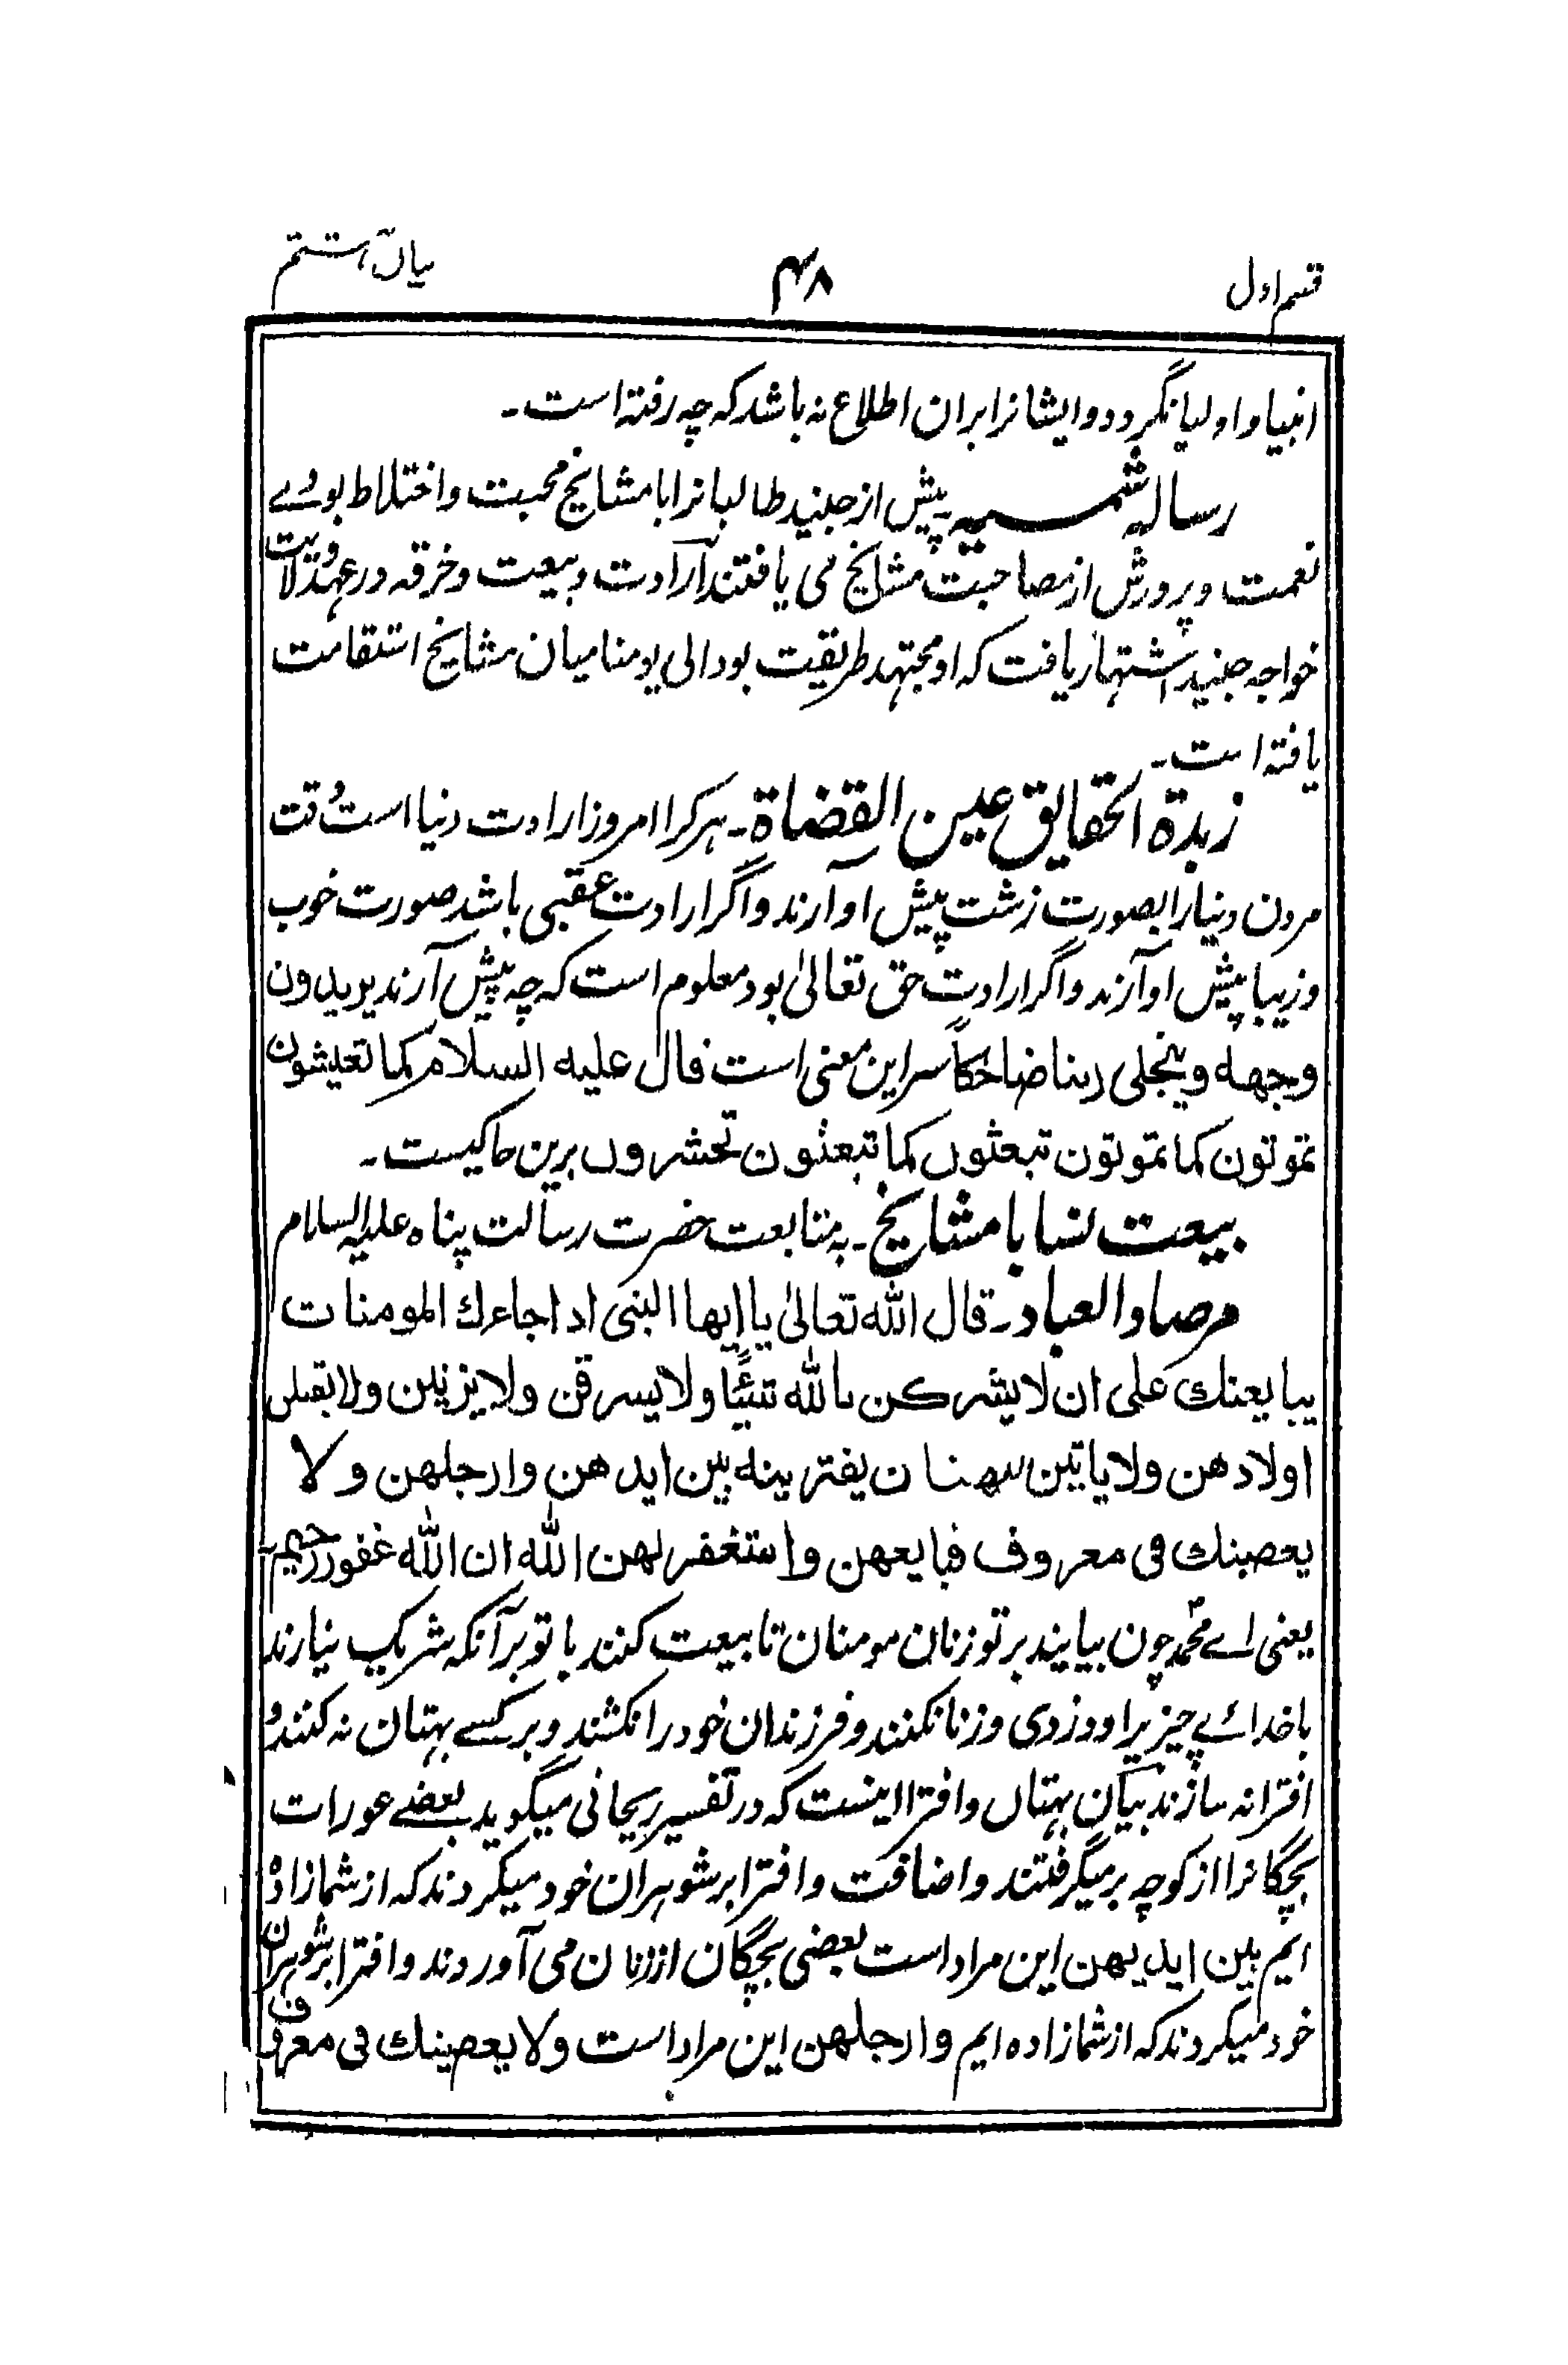 قسم اول ۴۸ بیان ہشتم
انبیا و اولیا نگردد و ایشانرا بران اطلاع نہ باشد کہ چہ رفتہ است۔
رسالہ شمسیہ پیش از جنید طالبانرا با مشایخ محبت و اختلاط بودے
نعمت و پرورش از مصاحبت مشایخ می یافتند ارادت و بیعت و خرقہ در عہد ولایت
خواجہ جنید اشتہار یافت کہ او مجتہد طریقت بود الی یومنا میان مشایخ استقامت
یافتہ است۔
زبدة الحقایق عین القضاة۔ ہر کرا امروز ارادت دنیا است وقت
مردن دنیا را بصورت زشت پیش او آرند و اگر ارادت عقبی باشد صورت خوب
و زیبا پیش او آرند و اگر ارادت حق تعالیٰ بود معلوم است کہ چہ پیش آرند یریدون
وجهه ویتجلی ربنا ضاحکاً سر این معنی است قال علیه السلام کما تعیشون
تموتون کما تموتون تبعثون کما تبعثون تحشرون برین حاکیست۔
بیعت نسا با مشایخ۔ بہ متابعت حضرت رسالت پناہ علیہ السلام
مرصاد العباد۔ قال الله تعالیٰ یا ایها النبی اذا جاءك المومنات
یبایعنك علی ان لا یشرکن بالله شیئًا ولا یسرقن ولا یزنین ولا یقتلن
اولادهن ولا یاتین ببهتان یفترینه بین ایدهن وارجلهن ولا
یعصینك فی معروف فبایعهن واستغفر لهن الله ان الله غفور رحیم
یعنی اے محمدؐ چون بیایند بر تو زنان مومنان تا بیعت کنند با تو بر آنکہ شریک نیارند
با خدائے چیزیرا و دزدی و زنا نکنند و فرزندان خود را نکشند و بر کسے بہتان نہ کنند و
افترا نہ سازند بیان بہتان و افترا اینست کہ در تفسیر ریحانی میگوید بعضے عورات
بچگانرا از کوچہ بر میگرفتند و اضافت و افترا بر شوہران خود میکردند کہ از شما زادہ
ایم بین ایدیهن این مراد است بعضی بچگان از زنان می آوردند و افترا بر شوہران
خود میکردند کہ از شما زادہ ایم وارجلهن این مراد است ولا یعصینك فی معروف